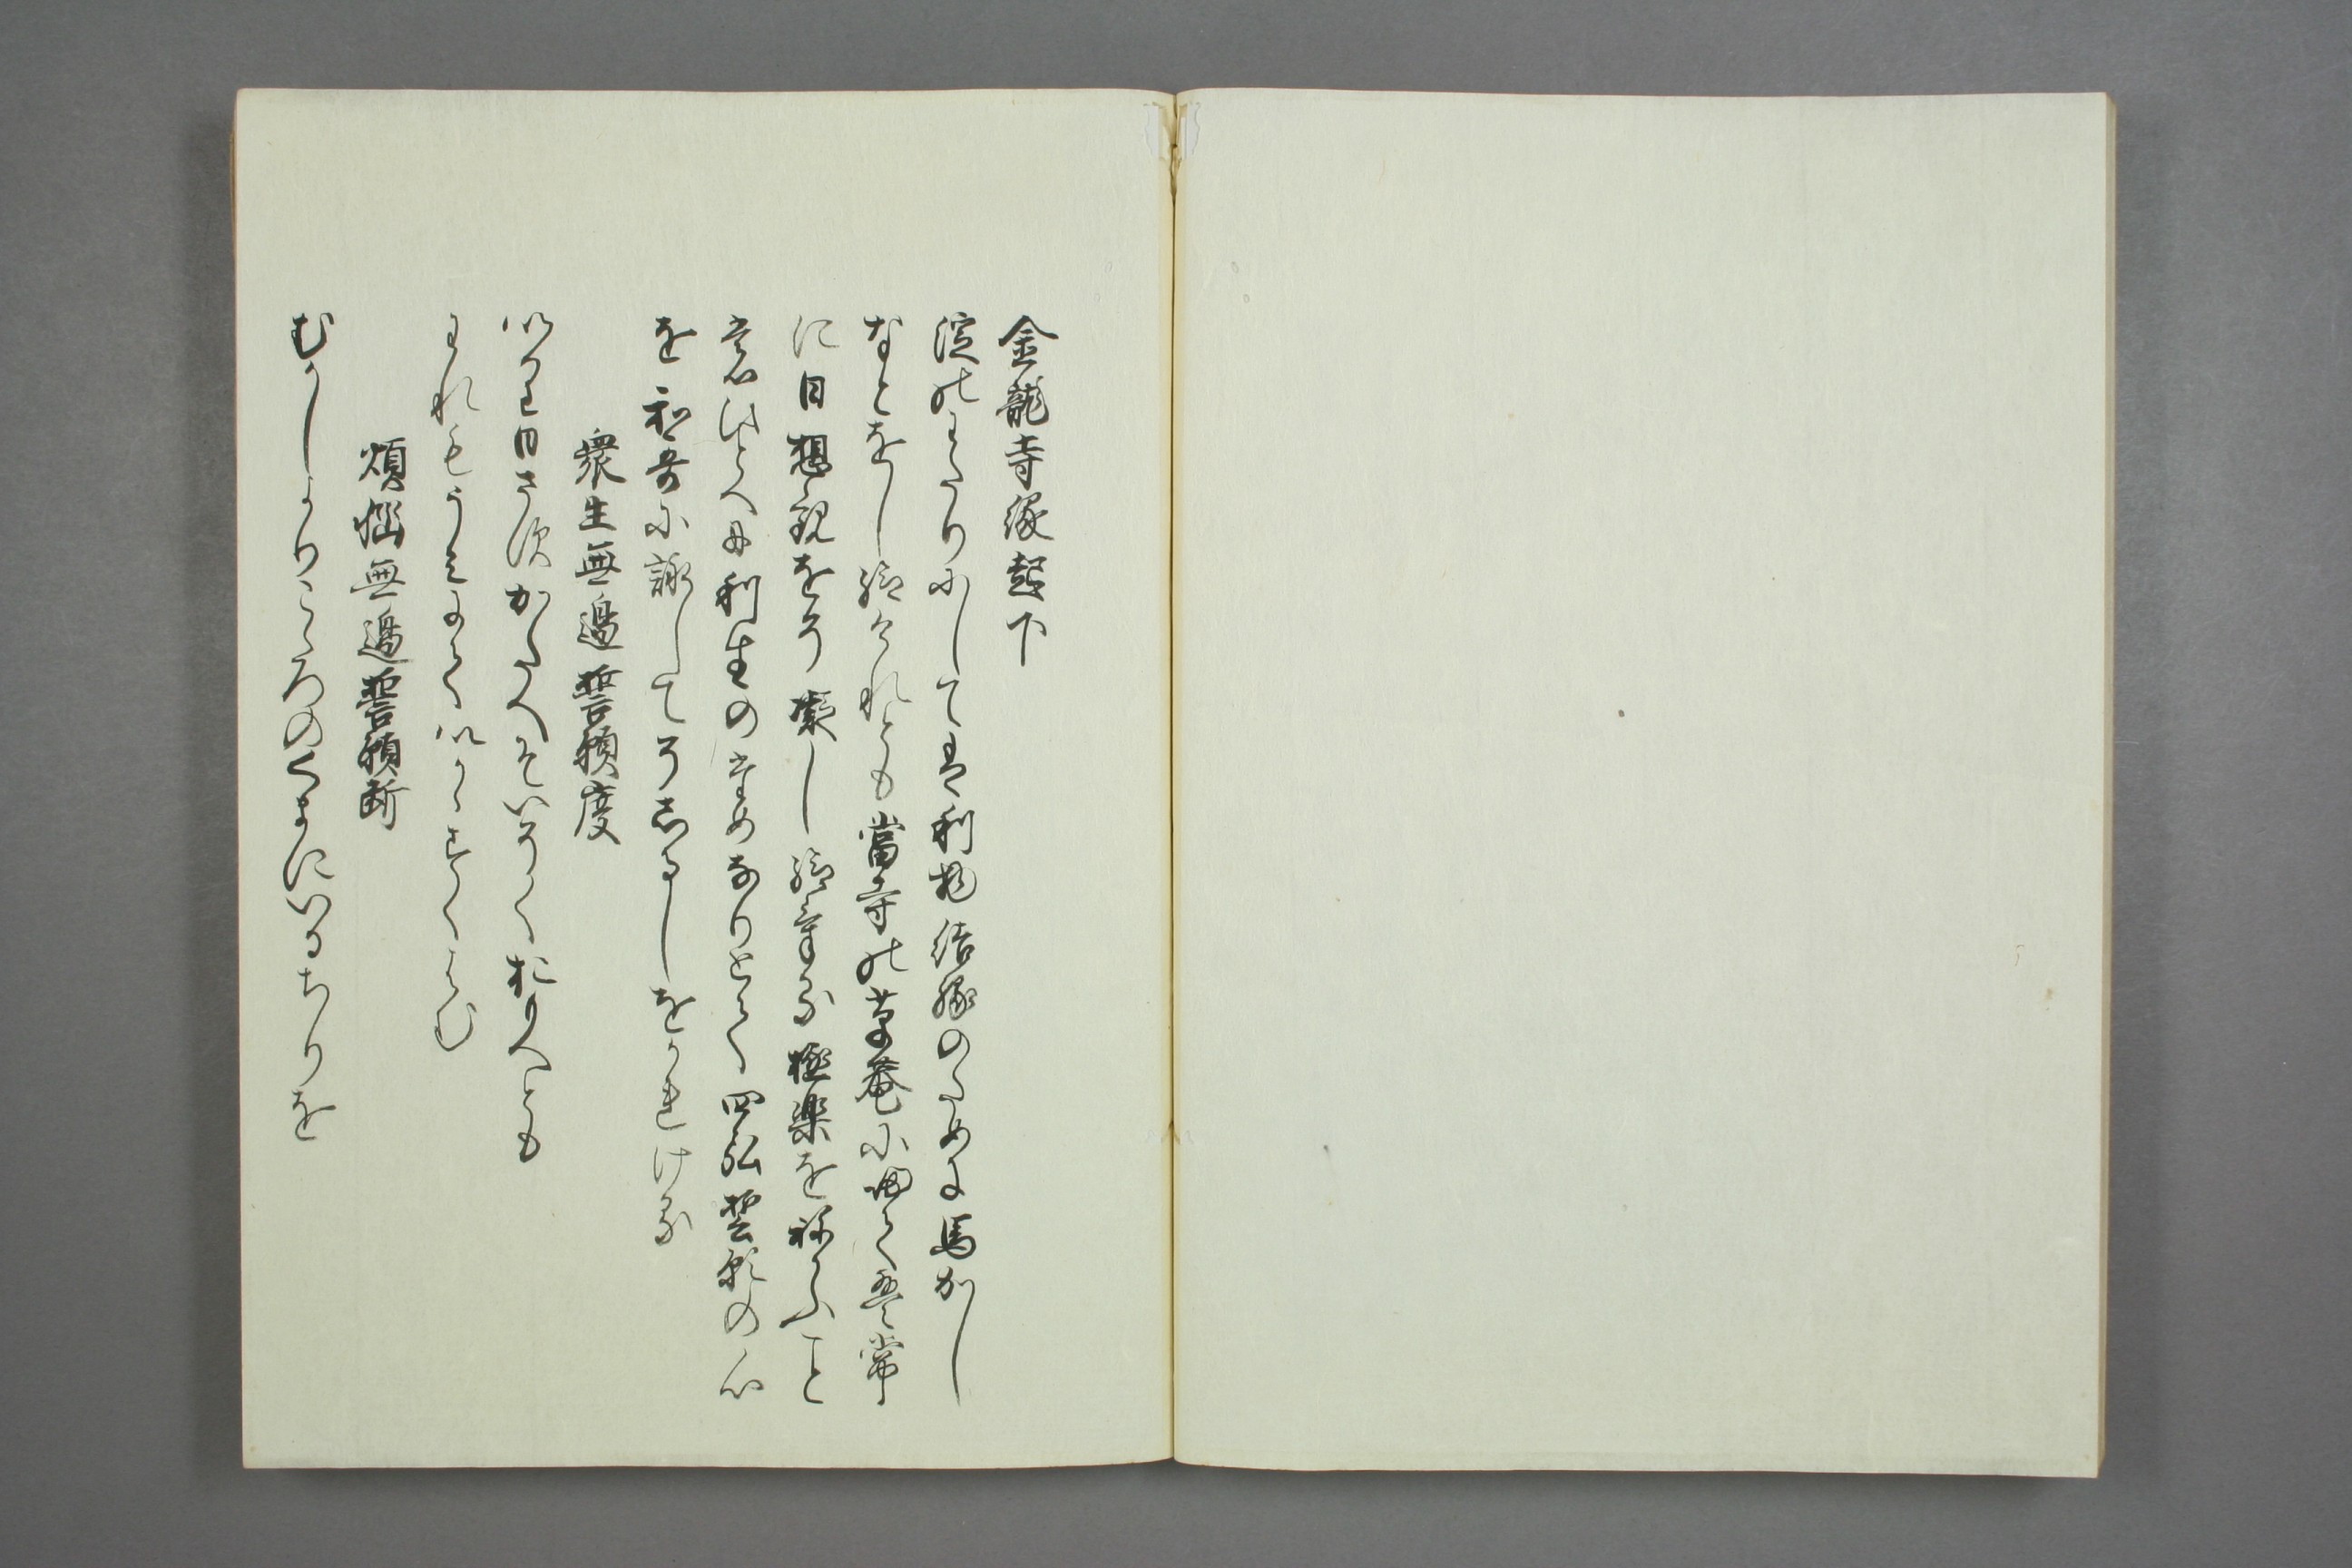 金龍寺縁起下
淀のわたりにしては利物結縁のために馬かし
なとをし給けれとも當寺の草菴に帰て無常
に日想観をそ凝し給ける極楽をねかふこと
意ひとへに利生のためなりとて四弘誓願の心
を和哥に詠してそあるしをかれける
衆生無邊誓願度
いかてかへといそくおもへとも
われもうみにていかゝすくはむ
煩悩無邊誓願断
むかしよりこゝろのくまにいるちりを